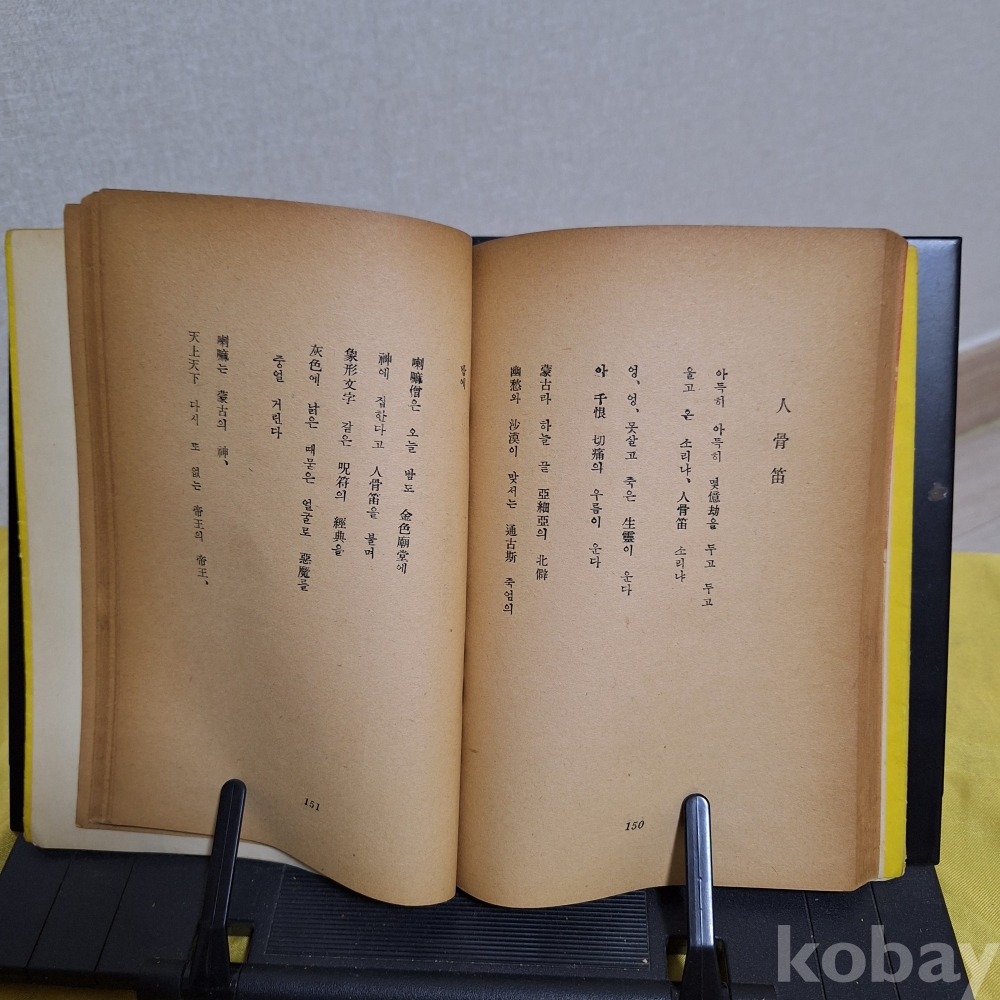 人骨笛
아득히 아득히 몇億劫을 두고 두고
울고 온 소리냐、人骨笛 소리냐
엉、엉、못살고 죽은 生靈이 운다
아 千恨 切痛의 우름이 운다
蒙古라 하늘 끝 亞細亞의 北僻
幽愁와 沙漠이 맞서는 通古斯 죽엄의
150
밤에
喇嘛僧은 오늘 밤도 金色廟堂에
神에 접한다고 人骨笛을 불며
象形文字 같은 呪符의 經典을
灰色에 낡은 때묻은 얼굴로 惡魔를
중얼 거린다
喇嘛는 蒙古의 神、
天上天下 다시 또 없는 帝王의 帝王、
151
kobay